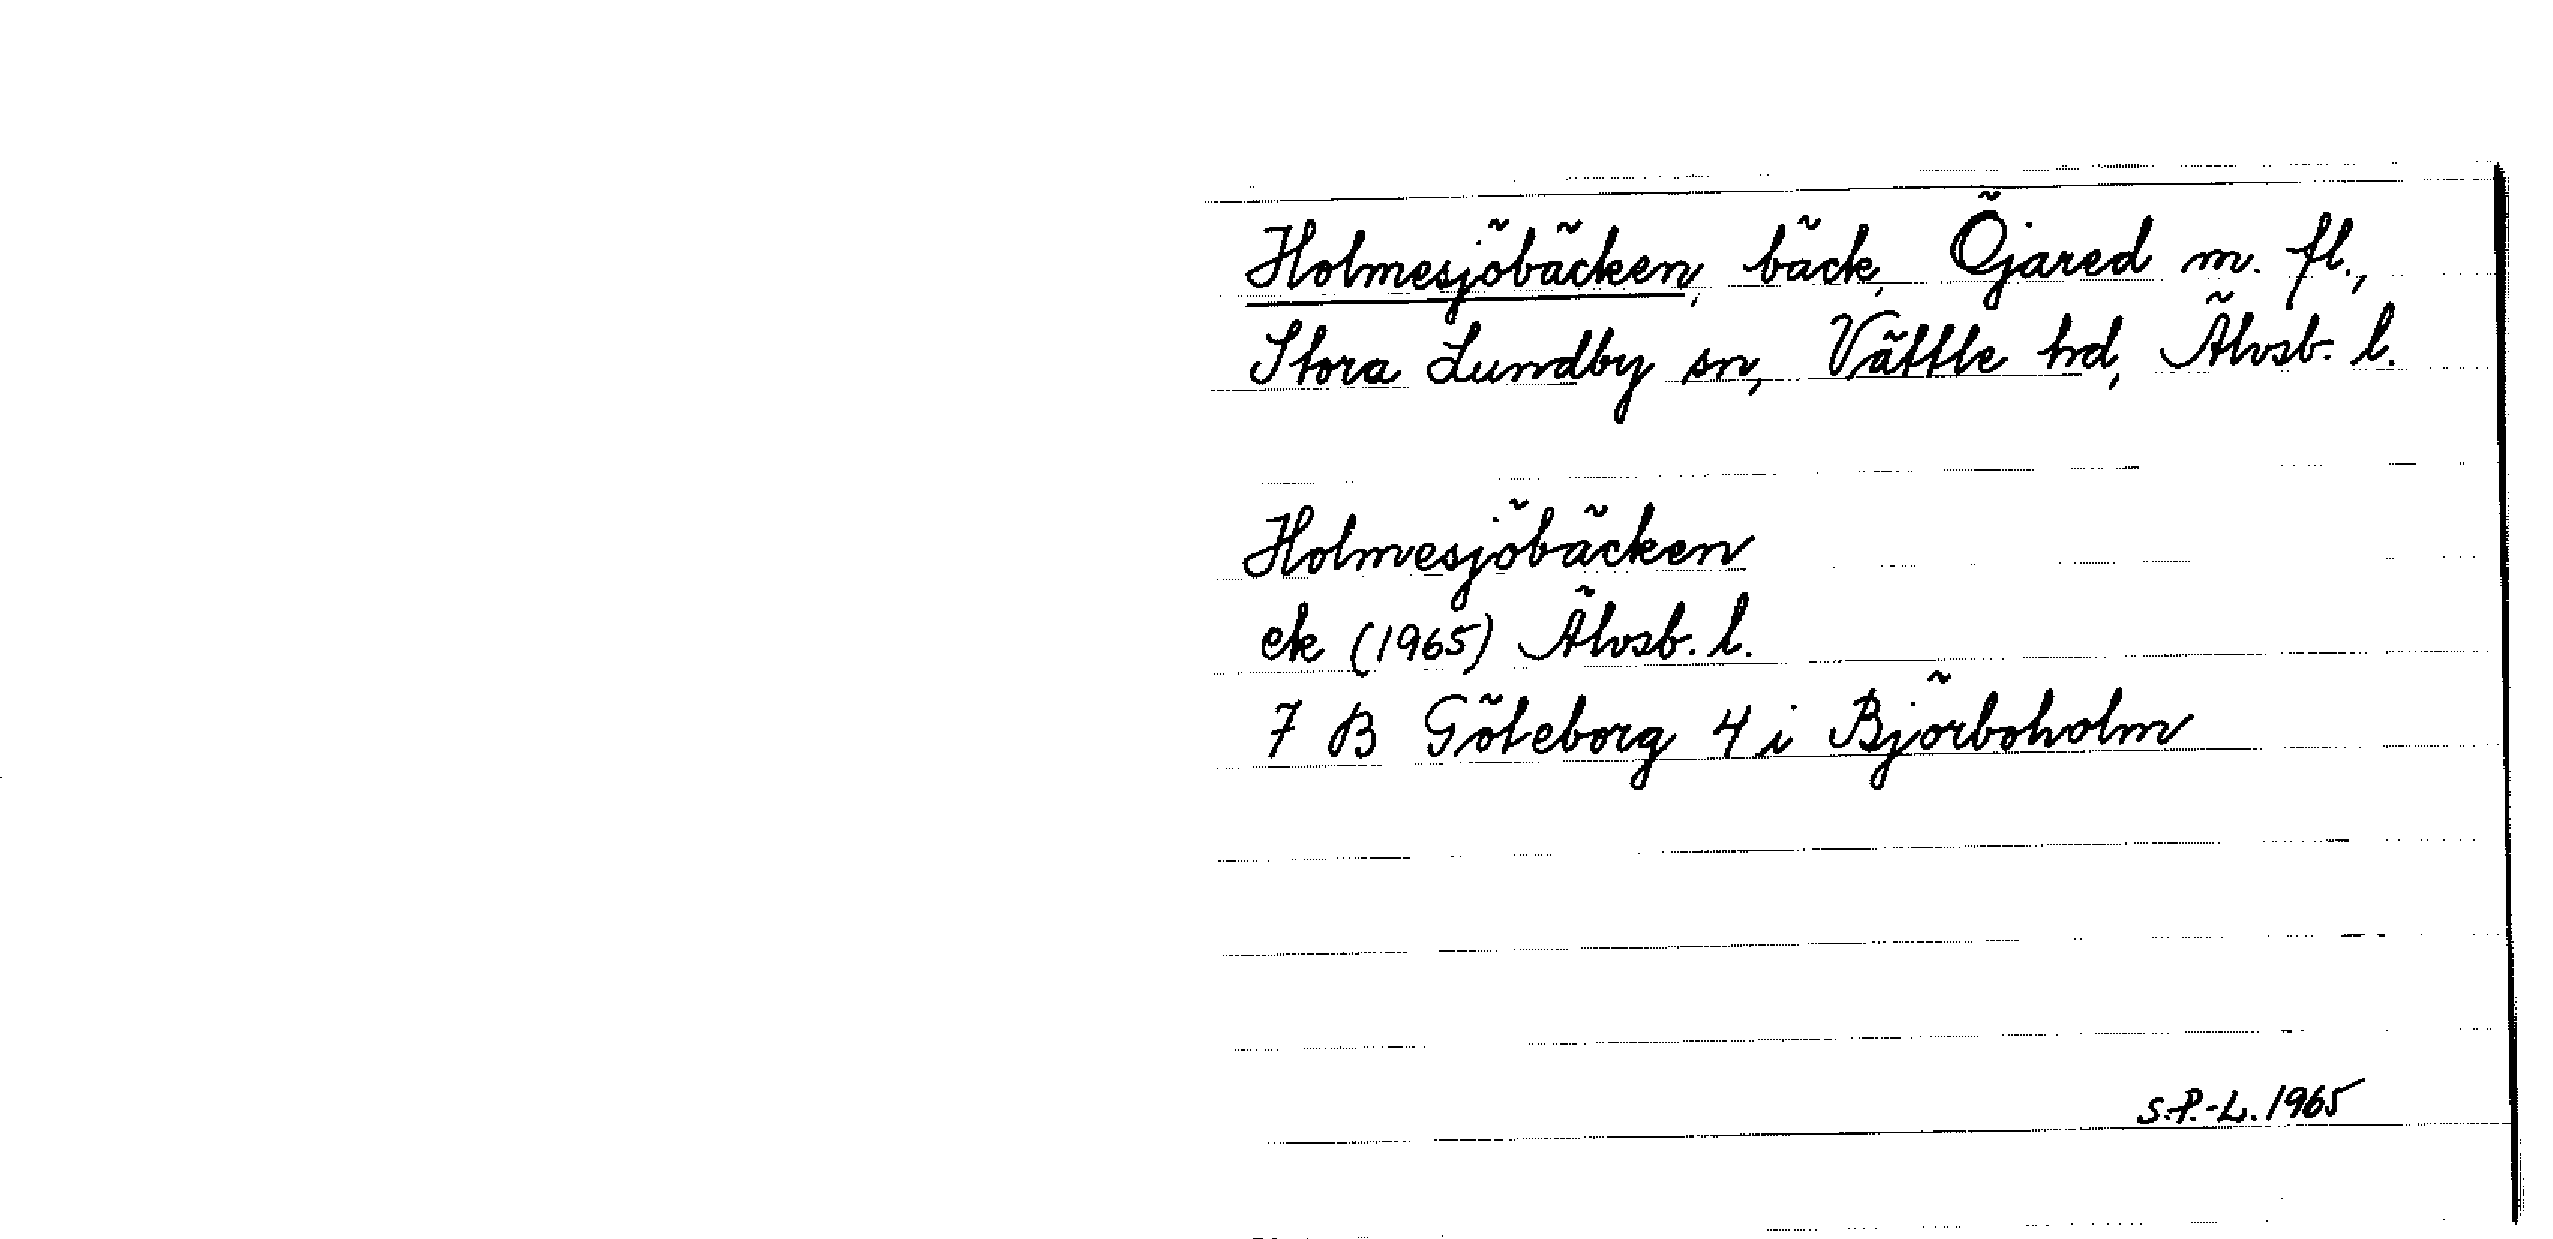 Holmesjöbäcken, bäck, Öjared m. fl.,
Stora Lundby sn, Vättle hd, Älvsb. l.
Holmesjöbäcken
ek (1965) Älvsb. l.
7 B Göteborg 4 i Björboholm
S.P.-L. 1965